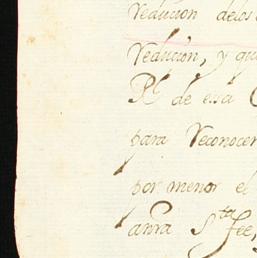 reducion delos
reducion, y qu
Rl. de esa C
para reconocer
por menor el
anra Sta. Fee,